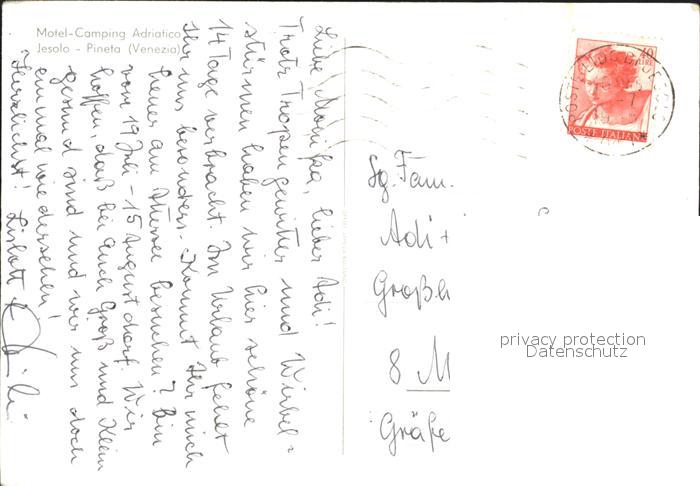 Motel-Camping Adriatico
Jesolo - Pineta (Venezia)
Liebe Monika, lieber Adi!
Trotz Tropengewitter und Wirbel-
stürmen haben wir hier schöne
14 Tage verbracht. Im Urlaub fehlt
Ihr uns besonders. Kommt Ihr mich
heuer am Attersee besuchen? Bin
vom 19. Juli - 15. August dort. Wir
hoffen, daß bei Euch Groß und Klein
gesund sind und wir uns doch
einmal wiedersehen!
Herzlichst! Liselott +
40
LIRE
POSTE ITALIANE
Sg. Fam.
Adi +
Großh
8 M
Gräfe
privacy protection
Datenschutz